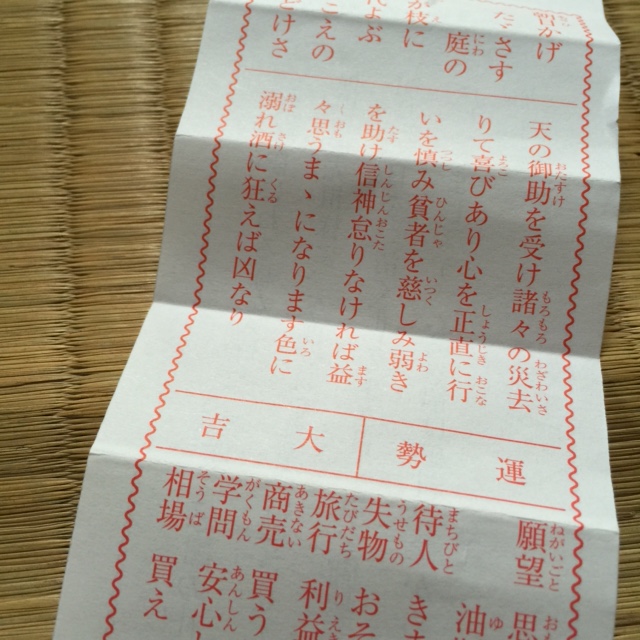 かげ
さす
庭の
枝に
こえの
どけさ
天の御助を受け諸々の災去
りて喜びあり心を正直に行
いを慎み貧者を慈しみ弱き
を助け信神怠りなければ益
々思うまゝになります色に
溺れ酒に狂えば凶なり
運勢
大吉
願望 思
油
待人 き
失物 おそ
旅行 利益
商売 買う
学問 安心し
相場 買え